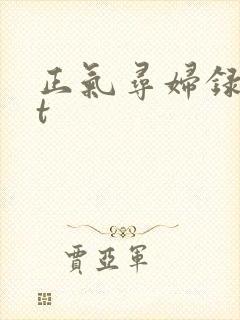 正氣尋婦録
t
賈亞軍